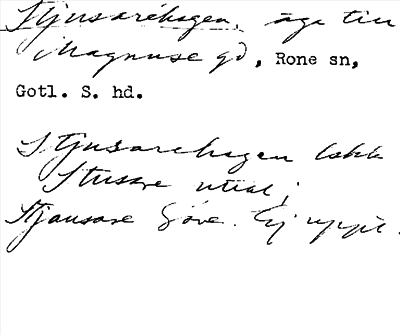 Stjusarehagen, äge till
Magnuse gd, Rone sn,
Gotl. S. hd.
Stjusarehagen
Stusare uttal;
Stjausare Göve. Ej uppt.